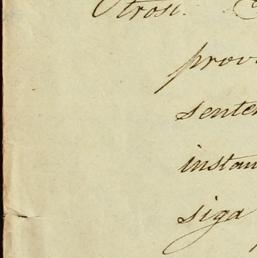 Otrosi.
prov
senten
instan
siga